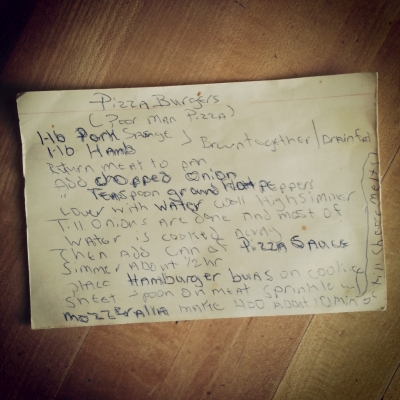 Pizza Burgers
(Poor man Pizza)
1-lb Pork Sausge } Brown together / Drain fat
1-lb Hamb
Return meat to pan
add chopped Onion
" Teaspoon ground Hot Peppers
cover with water well High Simmer
Till Onions are done and most of
water is cooked away
Then add can of Pizza Sauce
Simmer about 1/2 hr
place Hamburger buns on cookie
sheet spoon on meat sprinkle
mozzeralla 400 about 10 min
till cheese melts